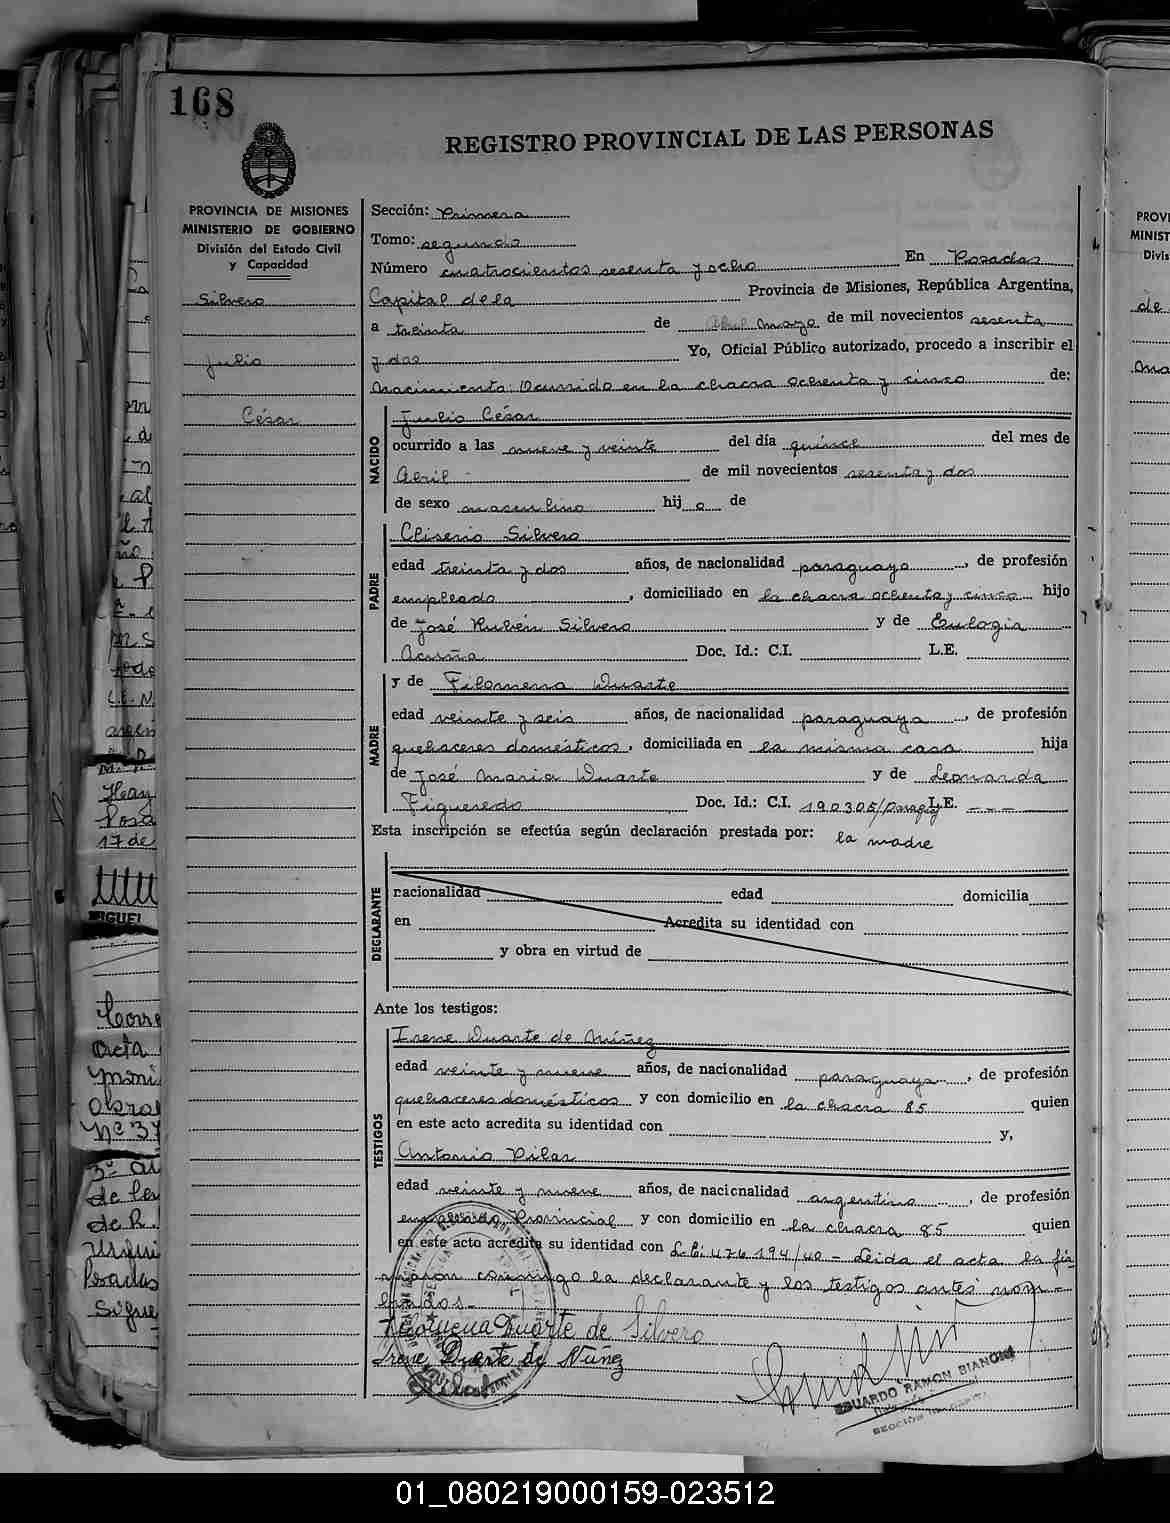 168
REGISTRO PROVINCIAL DE LAS PERSONAS
PROVINCIA DE MISIONES
MINISTERIO DE GOBIERNO
División del Estado Civil
y Capacidad
Silvero
Julio
César
Sección: Primera
Tomo: segundo
Número cuatrocientos sesenta y ocho En Posadas
Capital de la Provincia de Misiones, República Argentina,
a treinta de Abril mayo de mil novecientos sesenta
y dos Yo, Oficial Público autorizado, procedo a inscribir el
nacimiento: Ocurrido en la chacra ochenta y cinco de:
NACIDO
Julio César
ocurrido a las nueve y veinte del día quince del mes de
Abril - de mil novecientos sesenta y dos
de sexo masculino hij o de
PADRE
Cliserio Silvero
edad treinta y dos años, de nacionalidad paraguayo, de profesión
empleado, domiciliado en la chacra ochenta y cinco hijo
de José Rubén Silvero y de Eulogia
Acuña Doc. Id.: C.I. L.E.
MADRE
y de Filomena Duarte
edad veinte y seis años, de nacionalidad paraguaya, de profesión
quehaceres domésticos, domiciliada en la misma casa hija
de José Maria Duarte y de Leonarda
Figueredo Doc. Id.: C.I. 190305/Parag L.E. - - -
Esta inscripción se efectúa según declaración prestada por: la madre
DECLARANTE
racionalidad edad domicilia
en Acredita su identidad con
y obra en virtud de
Ante los testigos:
TESTIGOS
Irene Duarte de Núñez
edad veinte y nueve años, de nacionalidad paraguaya, de profesión
quehaceres domésticos y con domicilio en la chacra 85 quien
en este acto acredita su identidad con y,
Antonio Vilar
edad veinte y nueve años, de nacirnalidad argentino, de profesión
empleado Provincial y con domicilio en la chacra 85 quien
en este acto acredita su identidad con L.E. 476194/40 - Leida el acta la fir
maron conmigo la declarante y los testigos antes nom-
brados -
Filomena Duarte de Silvero
Irene Duarte de Núñez
EDUARDO RAMON BIANCHI
PROVI
MINIST
Divis
Heay
Posa
17 de
MIGUEL
Acta
Nº 37
Posadas
01_080219000159-023512